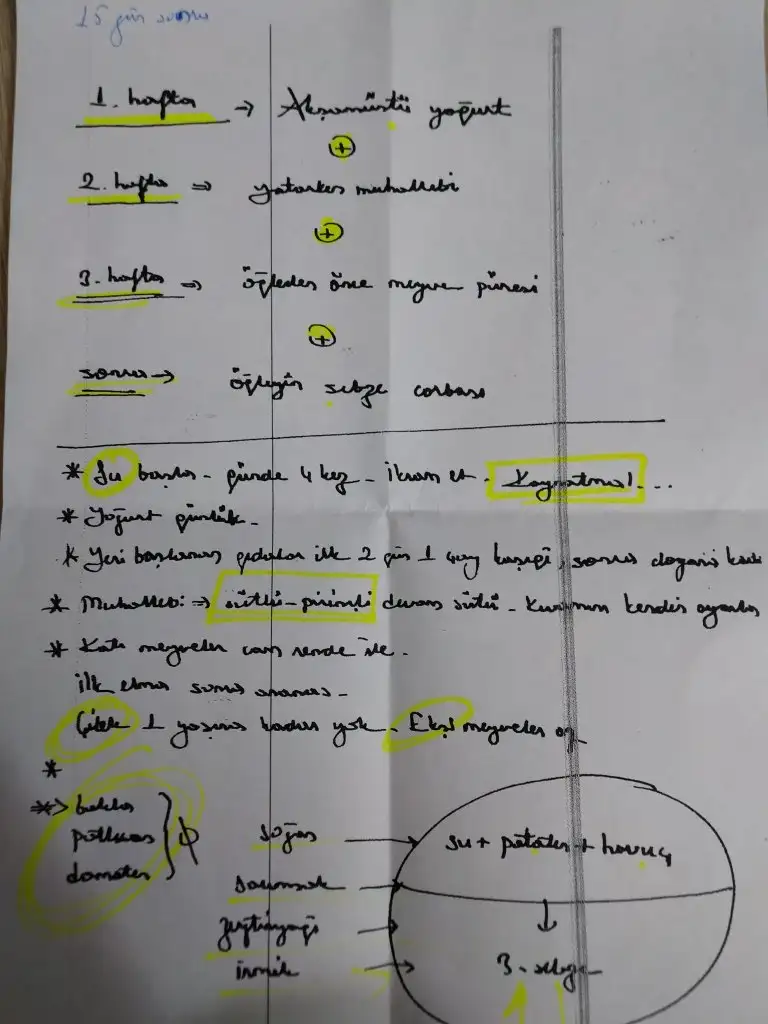 15 gün sonra
1. hafta → Akşamüstü yoğurt
+
2. hafta ⇒ yatarken muhallebi
+
3. hafta ⇒ öğleden önce meyve püresi
+
sonra → öğleyin sebze çorbası
* Su başla - günde 4 kez - ikram et. Kaynatma! ...
* Yoğurt günlük -
* Yeni başlanan gıdalar ilk 2 gün 1 çay kaşığı, sonra
* Muhallebi ⇒ sütlü - pirinçli devam sütü - kendin
* Katı meyveler cam rende ile.
ilk elma sonra
Çilek 1 yaşına kadar yok - Ekşi meyveler
*
*> bakla
patlıcan
domates
soğan → su + patates + havuç
sarımsak →
zeytinyağı → ↓
irmik → 3. sebze